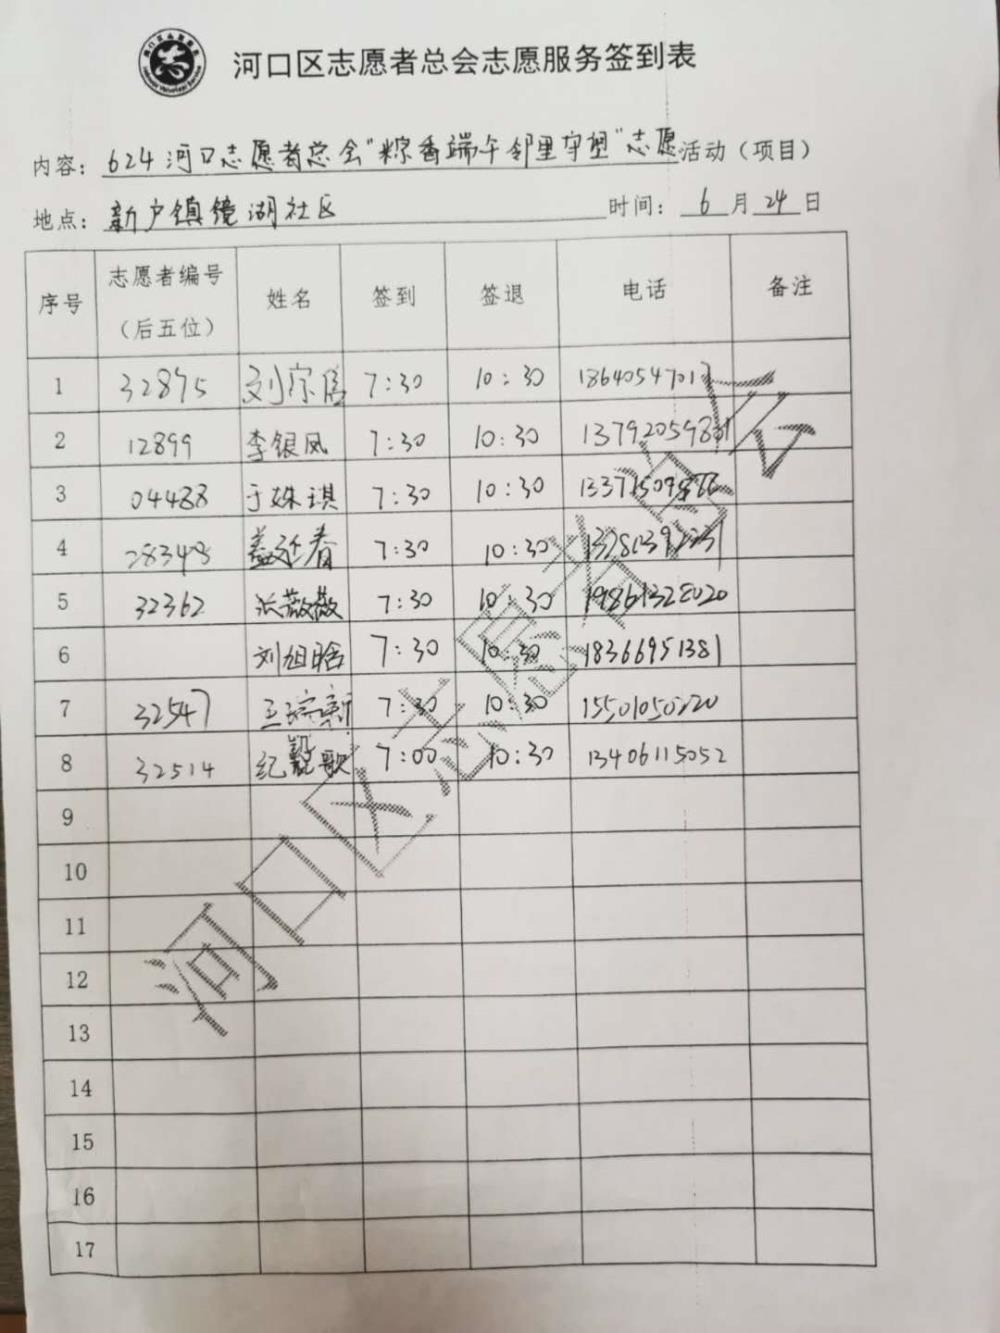 河口区志愿者总会志愿服务签到表
内容：624河口志愿者总会“粽香端午邻里守望”志愿活动（项目）
地点：新户镇镜湖社区 时间：6月24日
序号 志愿者编号（后五位） 姓名 签到 签退 电话 备注
1 32875 7:30 10:30 18640547017
2 12899 李银凤 7:30 10:30
3 04488 于姝琪 7:30 10:30
4 28348 盖廷春 7:30 10:30
5 32362 薇薇 7:30 10:30
6 刘旭晗 7:30 10:30 18366951381
7 32547 王新 7:30 10:30 15501050220
8 32514 纪歌 7:00 10:30 13406115052
9
10
11
12
13
14
15
16
17
河口区志愿者总会